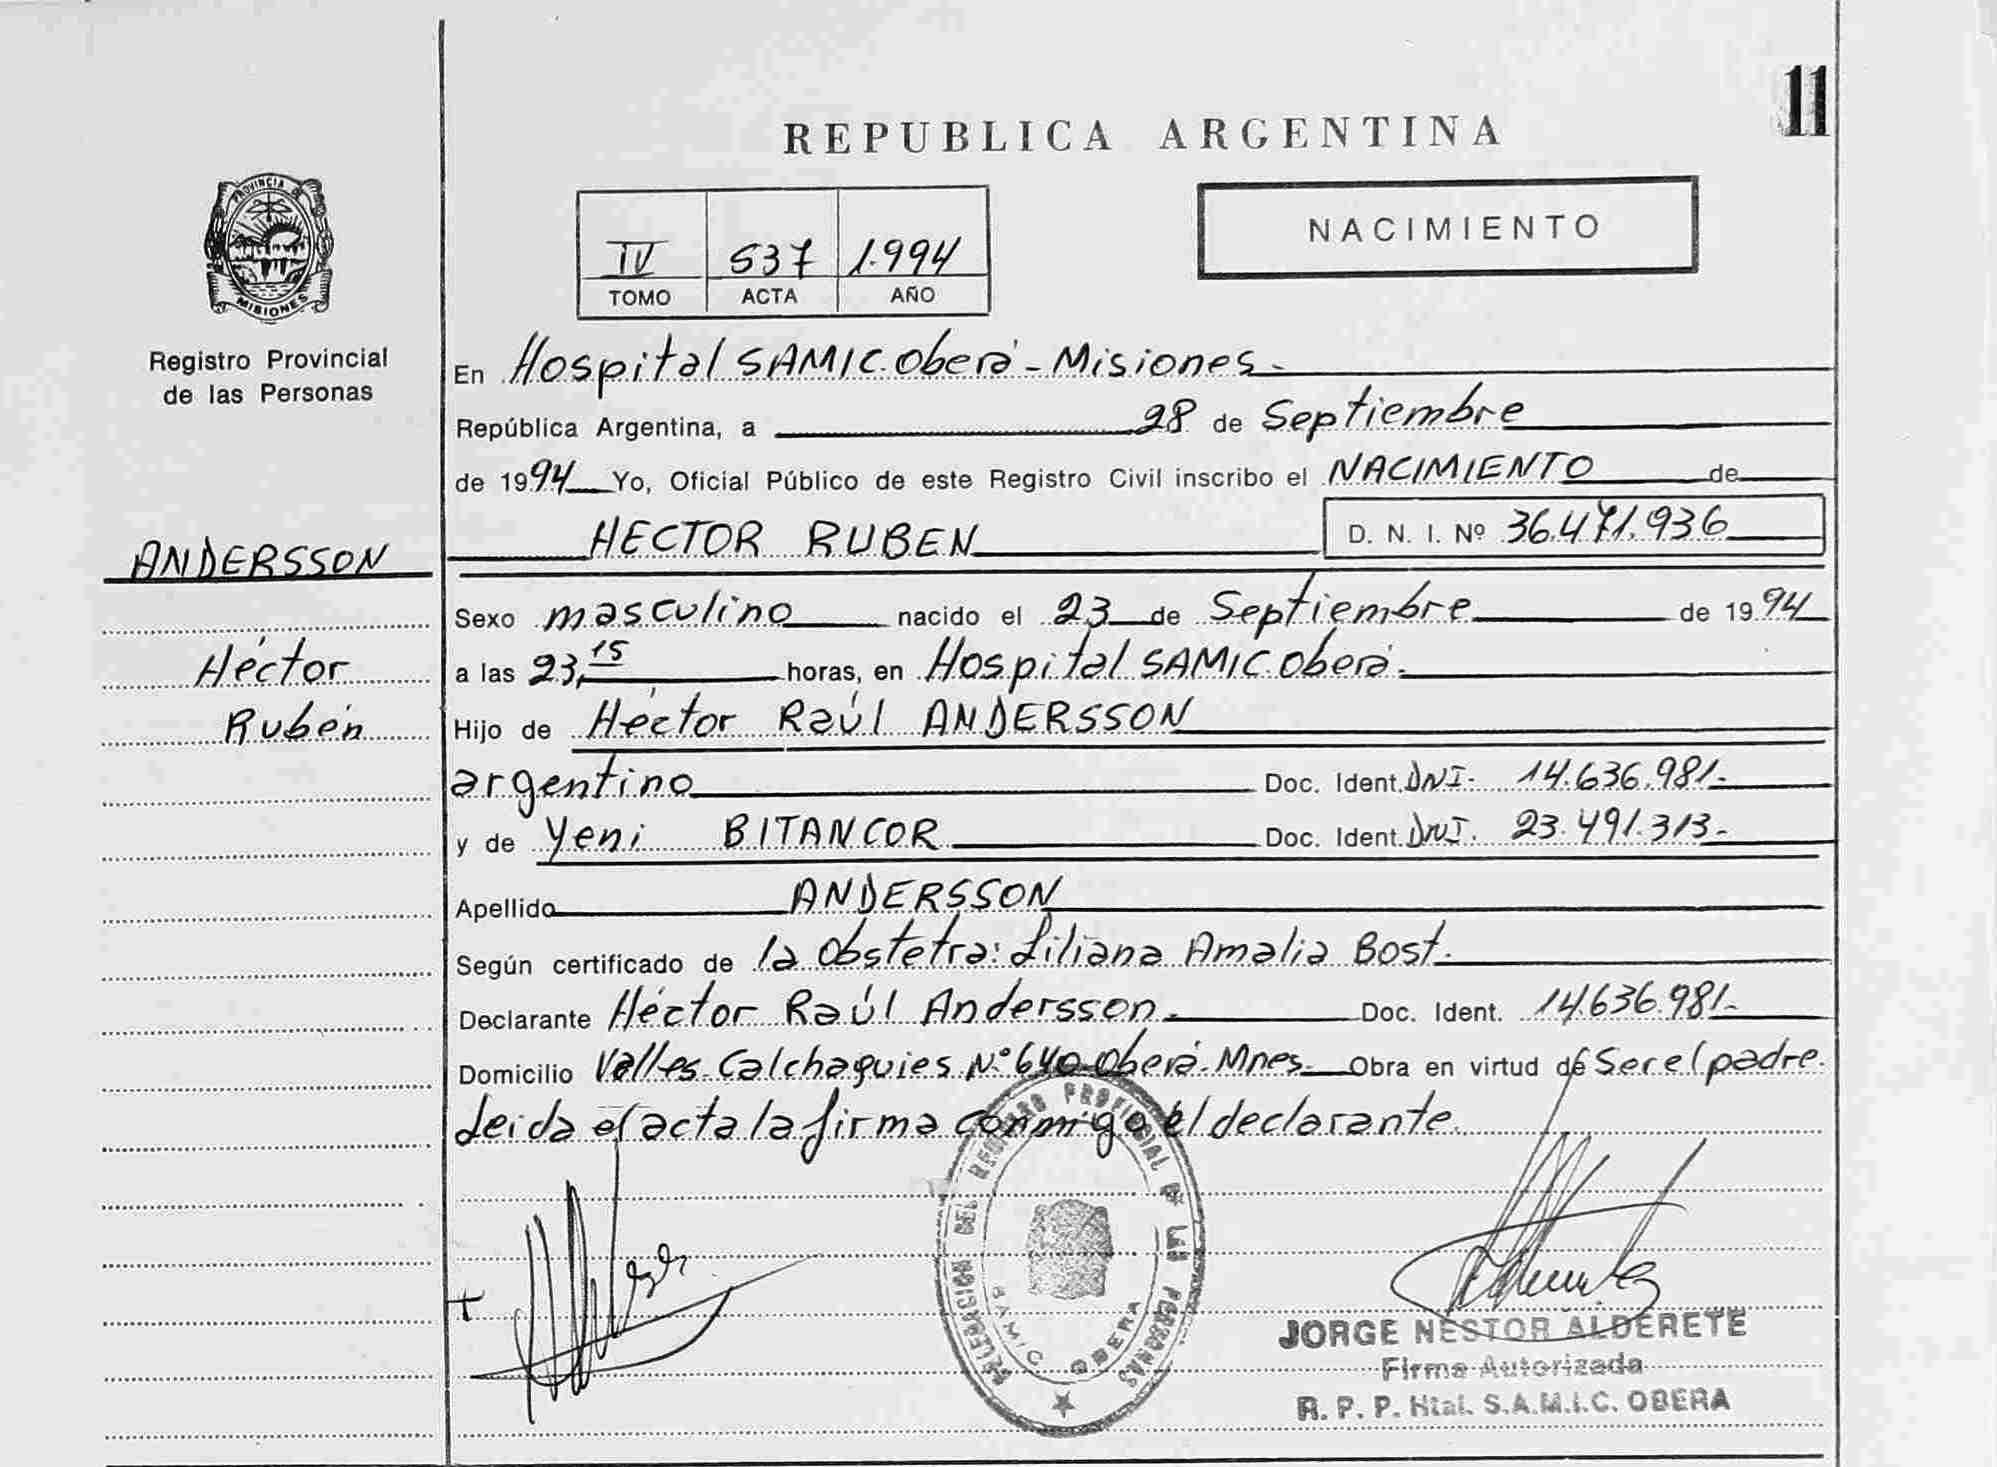 11
REPUBLICA ARGENTINA
PROVINCIA DE
MISIONES
Registro Provincial
de las Personas
IV 537 1.994
TOMO ACTA AÑO
NACIMIENTO
En Hospital SAMIC. Oberá - Misiones.
República Argentina, a 28 de Septiembre
de 1994 Yo, Oficial Público de este Registro Civil inscribo el NACIMIENTO de
HECTOR RUBEN D. N. I. Nº 36.471.936
ANDERSSON
Héctor
Rubén
Sexo masculino nacido el 23 de Septiembre de 1994
a las 23,15 horas, en Hospital SAMIC. Oberá.
Hijo de Héctor Raúl ANDERSSON
argentino Doc. Ident. DNI. 14.636.981.
y de Yeni BITANCOR Doc. Ident. DNI. 23.491.313.
Apellido ANDERSSON
Según certificado de la Obstetra: Liliana Amalia Bost.
Declarante Héctor Raúl Andersson. Doc. Ident. 14.636.981.
Domicilio Valles Calchaquies Nº 640 Oberá. Mnes. Obra en virtud de Ser el padre.
Leida el acta la firma conmigo el declarante.
DEL REGISTRO PROVINCIAL DE LAS PERSONAS
SAMIC OBERA
JORGE NESTOR ALDERETE
Firma Autorizada
R. P. P. Htal. S.A.M.I.C. OBERA